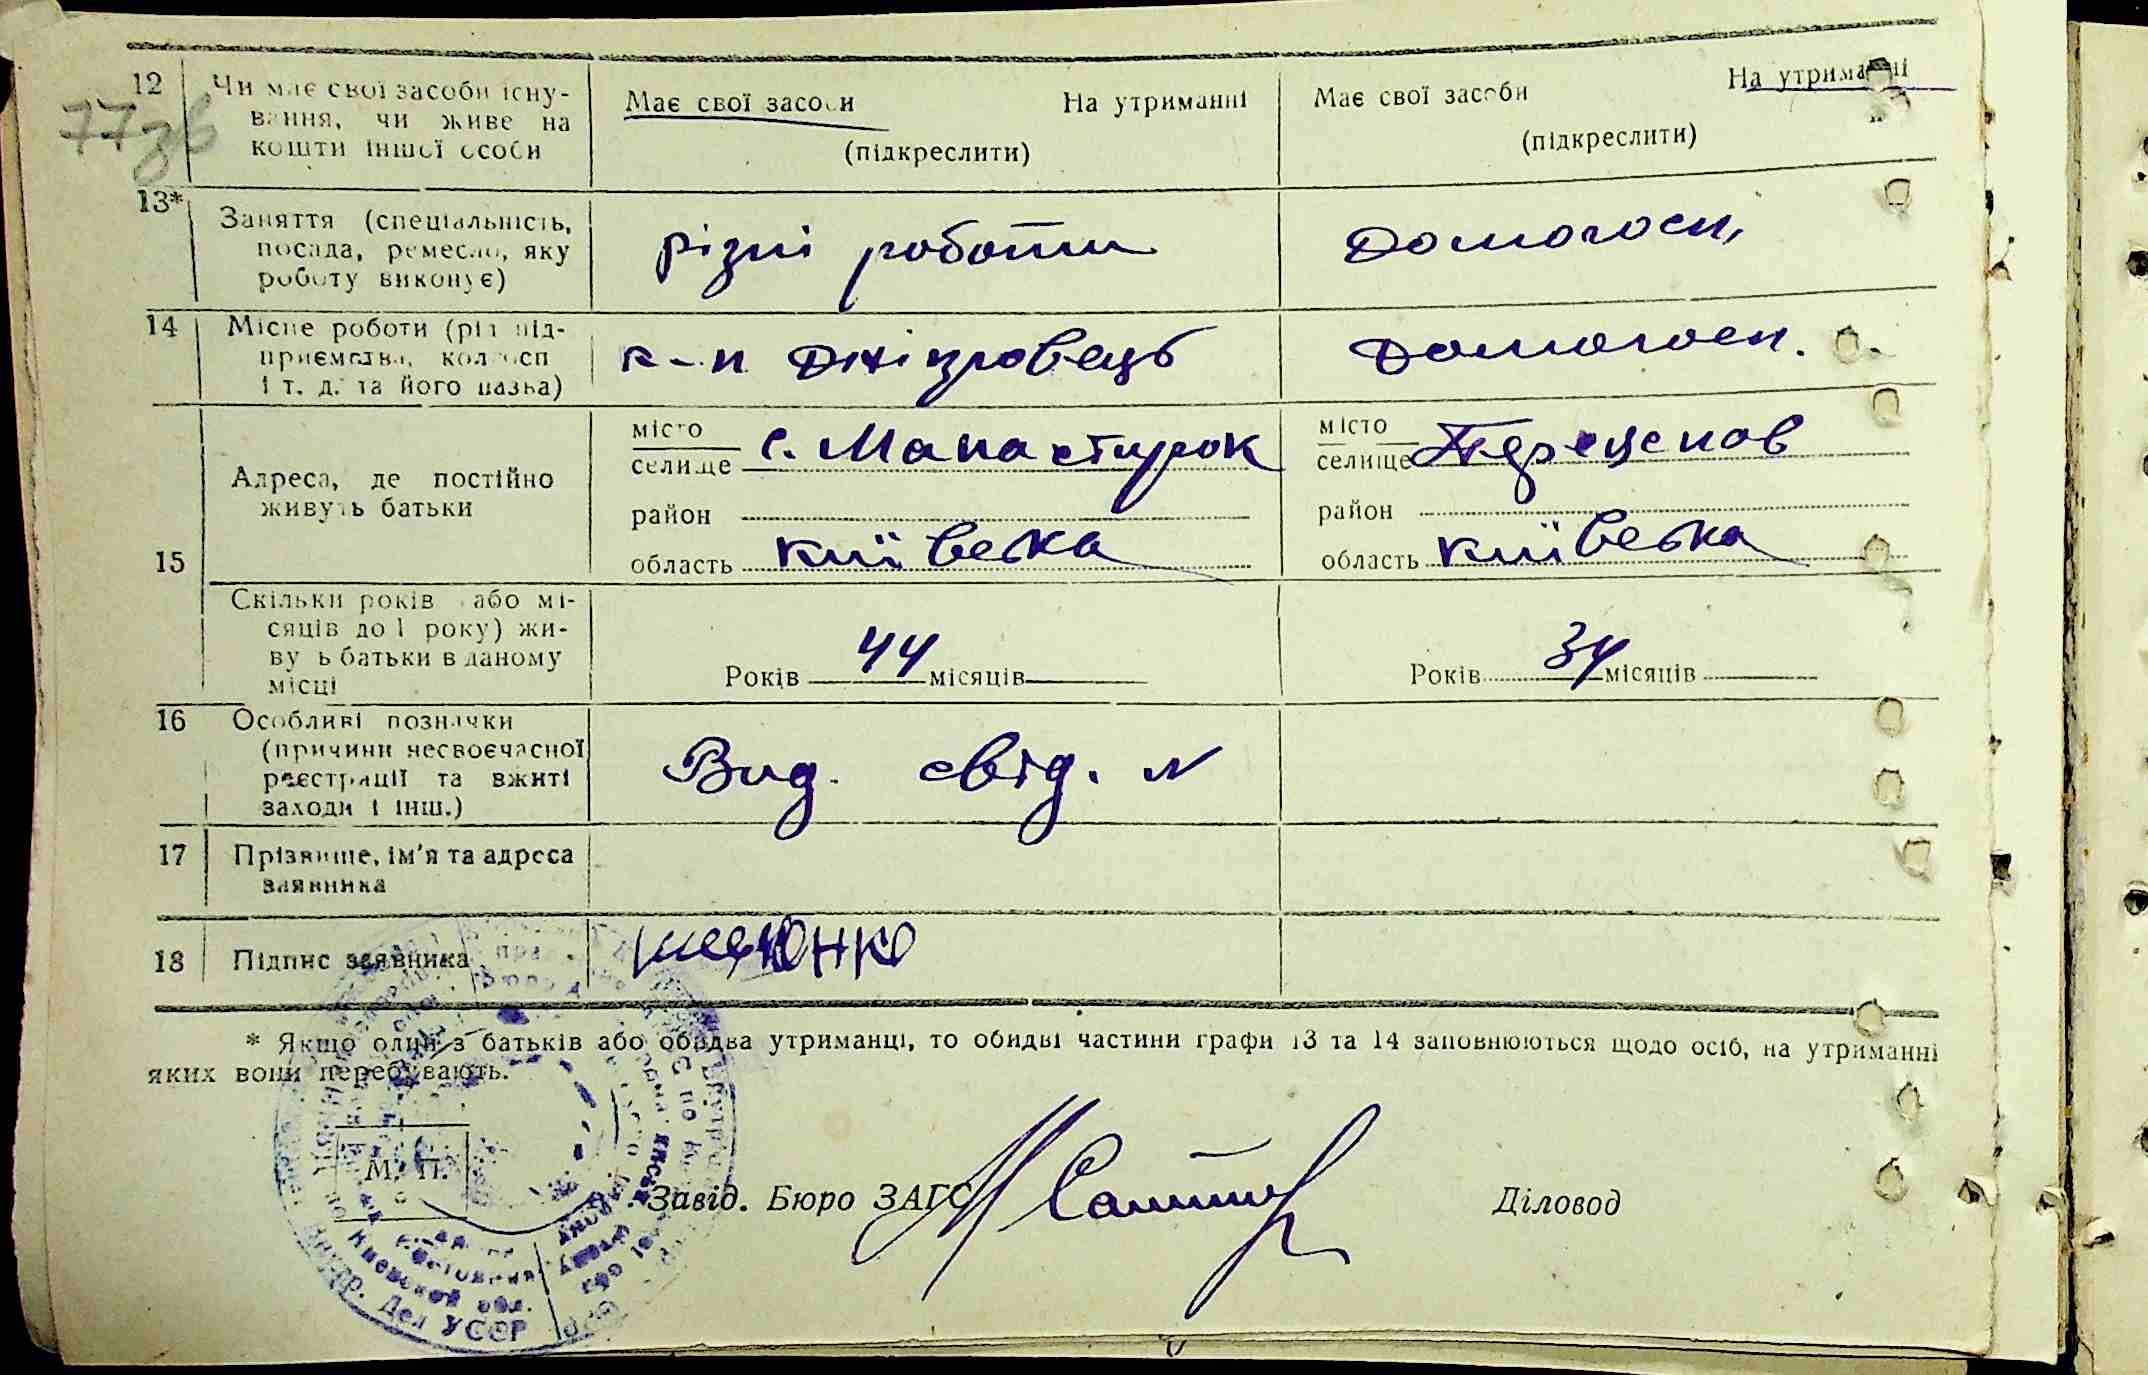 77зв
12 Чи має свої засоби існу-
вання, чи живе на
кошти іншої особи
Має свої засоби На утриманні
(підкреслити)
Має свої засоби На утриманні
(підкреслити)
13* Заняття (спеціальність,
посада, ремесло, яку
роботу виконує)
різні роботи
Домогосп,
14 Місце роботи (рід під-
приємства, колгосп
і т. д. та його назва)
к-п Дніпровець
Домогосп.
15 Адреса, де постійно
живуть батьки
місто
селище с. Манастирок
район
область Київська
місто
селище
район
область Київська
Скільки років або мі-
сяців до 1 року) жи-
вуть батьки в даному
місці
Років 44 місяців
Років 34 місяців
16 Особливі позначки
(причини несвоєчасної
реєстрації та вжиті
заходи і інш.)
Вид. свід. N
17 Прізвище, ім'я та адреса
заявника
18 Підпис заявника
* Якщо один з батьків або обидва утриманці, то обидві частини графи 13 та 14 заповнюються щодо осіб, на утриманні
яких вони перебувають.
М. П.
Завід. Бюро ЗАГС
Діловод
Киевской обл.
Внутр. Дел УССР